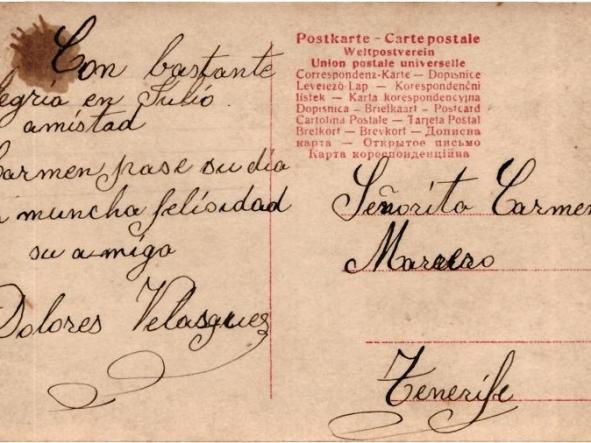 Con bastante
legria en Julio.
amistad
Carmen pase su dia
n muncha felisidad
su amiga
Dolores Velasquez
Postkarte – Carte postale
Weltpostverein
Union postale universelle
Correspondenz-Karte — Dopisnice
Levelező-Lap — Korespondenční
lístek — Karta korespondencyjna
Dopisnica — Briefkaart — Postcard
Cartolina Postale — Tarjeta Postal
Brefkort — Brevkort — Дописна
карта — Открытое письмо
Карта кореспонденційна
Señorita Carmen
Marrero
Tenerife